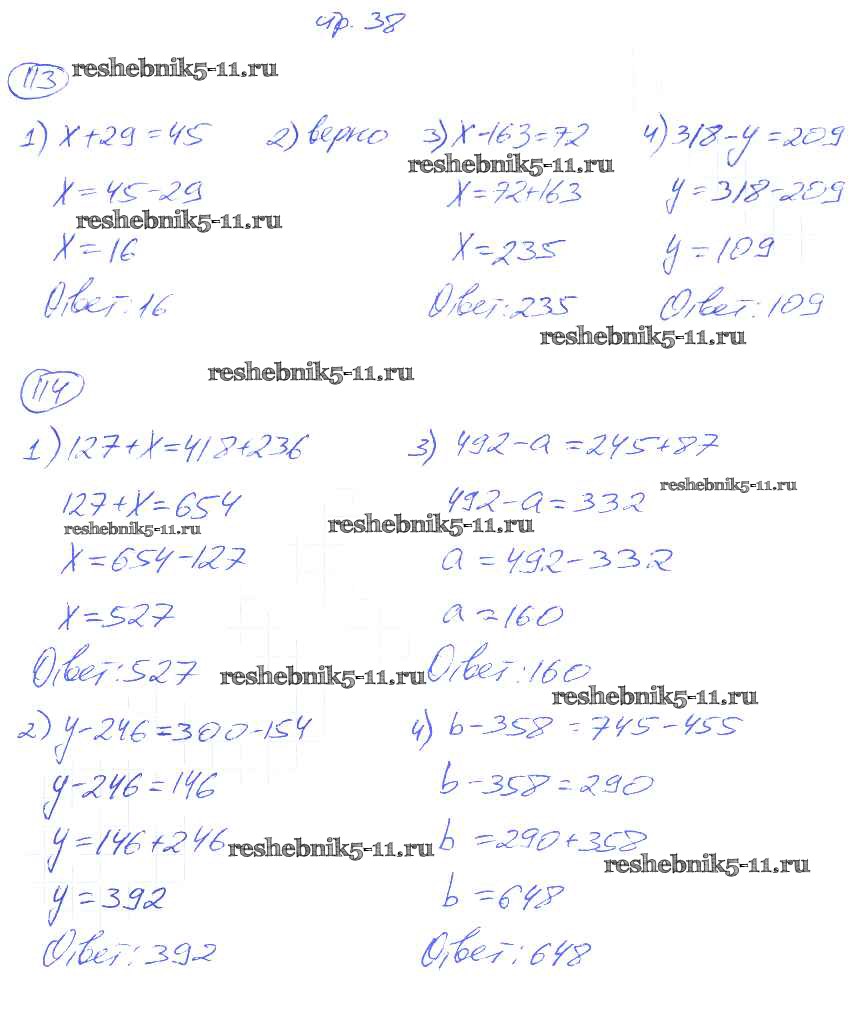 стр. 38
113 reshebnik5-11.ru
1) x+29=45 2) верно 3) x-163=72 4) 318-y=209
reshebnik5-11.ru
x=45-29 x=72+163 y=318-209
reshebnik5-11.ru
x=16 x=235 y=109
Ответ: 16 Ответ: 235 Ответ: 109
reshebnik5-11.ru
114 reshebnik5-11.ru
1) 127+x=418+236 3) 492-a=245+87
reshebnik5-11.ru
127+x=654 492-a=332
reshebnik5-11.ru reshebnik5-11.ru
x=654-127 a=492-332
x=527 a=160
Ответ: 527 reshebnik5-11.ru Ответ: 160
reshebnik5-11.ru
2) y-246=300-154 4) b-358=745-455
y-246=146 b-358=290
y=146+246 reshebnik5-11.ru b=290+358
reshebnik5-11.ru
y=392 b=648
Ответ: 392 Ответ: 648